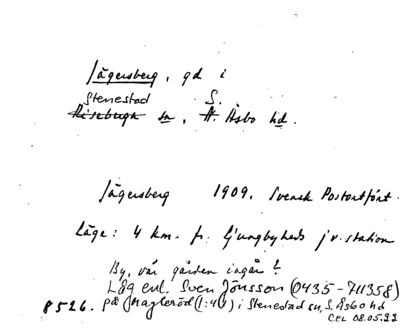 Jägersberg, gd i
Stenestad S.
Riseberga sn, N. Åsbo hd.
Jägersberg 1909. Svensk Postortfört.
Läge: 4 km. fr. Ljungbyheds jv.station
By, var gården ingår?
Låg enl. Sven Jönsson (0435-711358)
8526. på Maglaröd (1:40) i Stenestad sn, S Åsbo hd
CEL 08.05.22